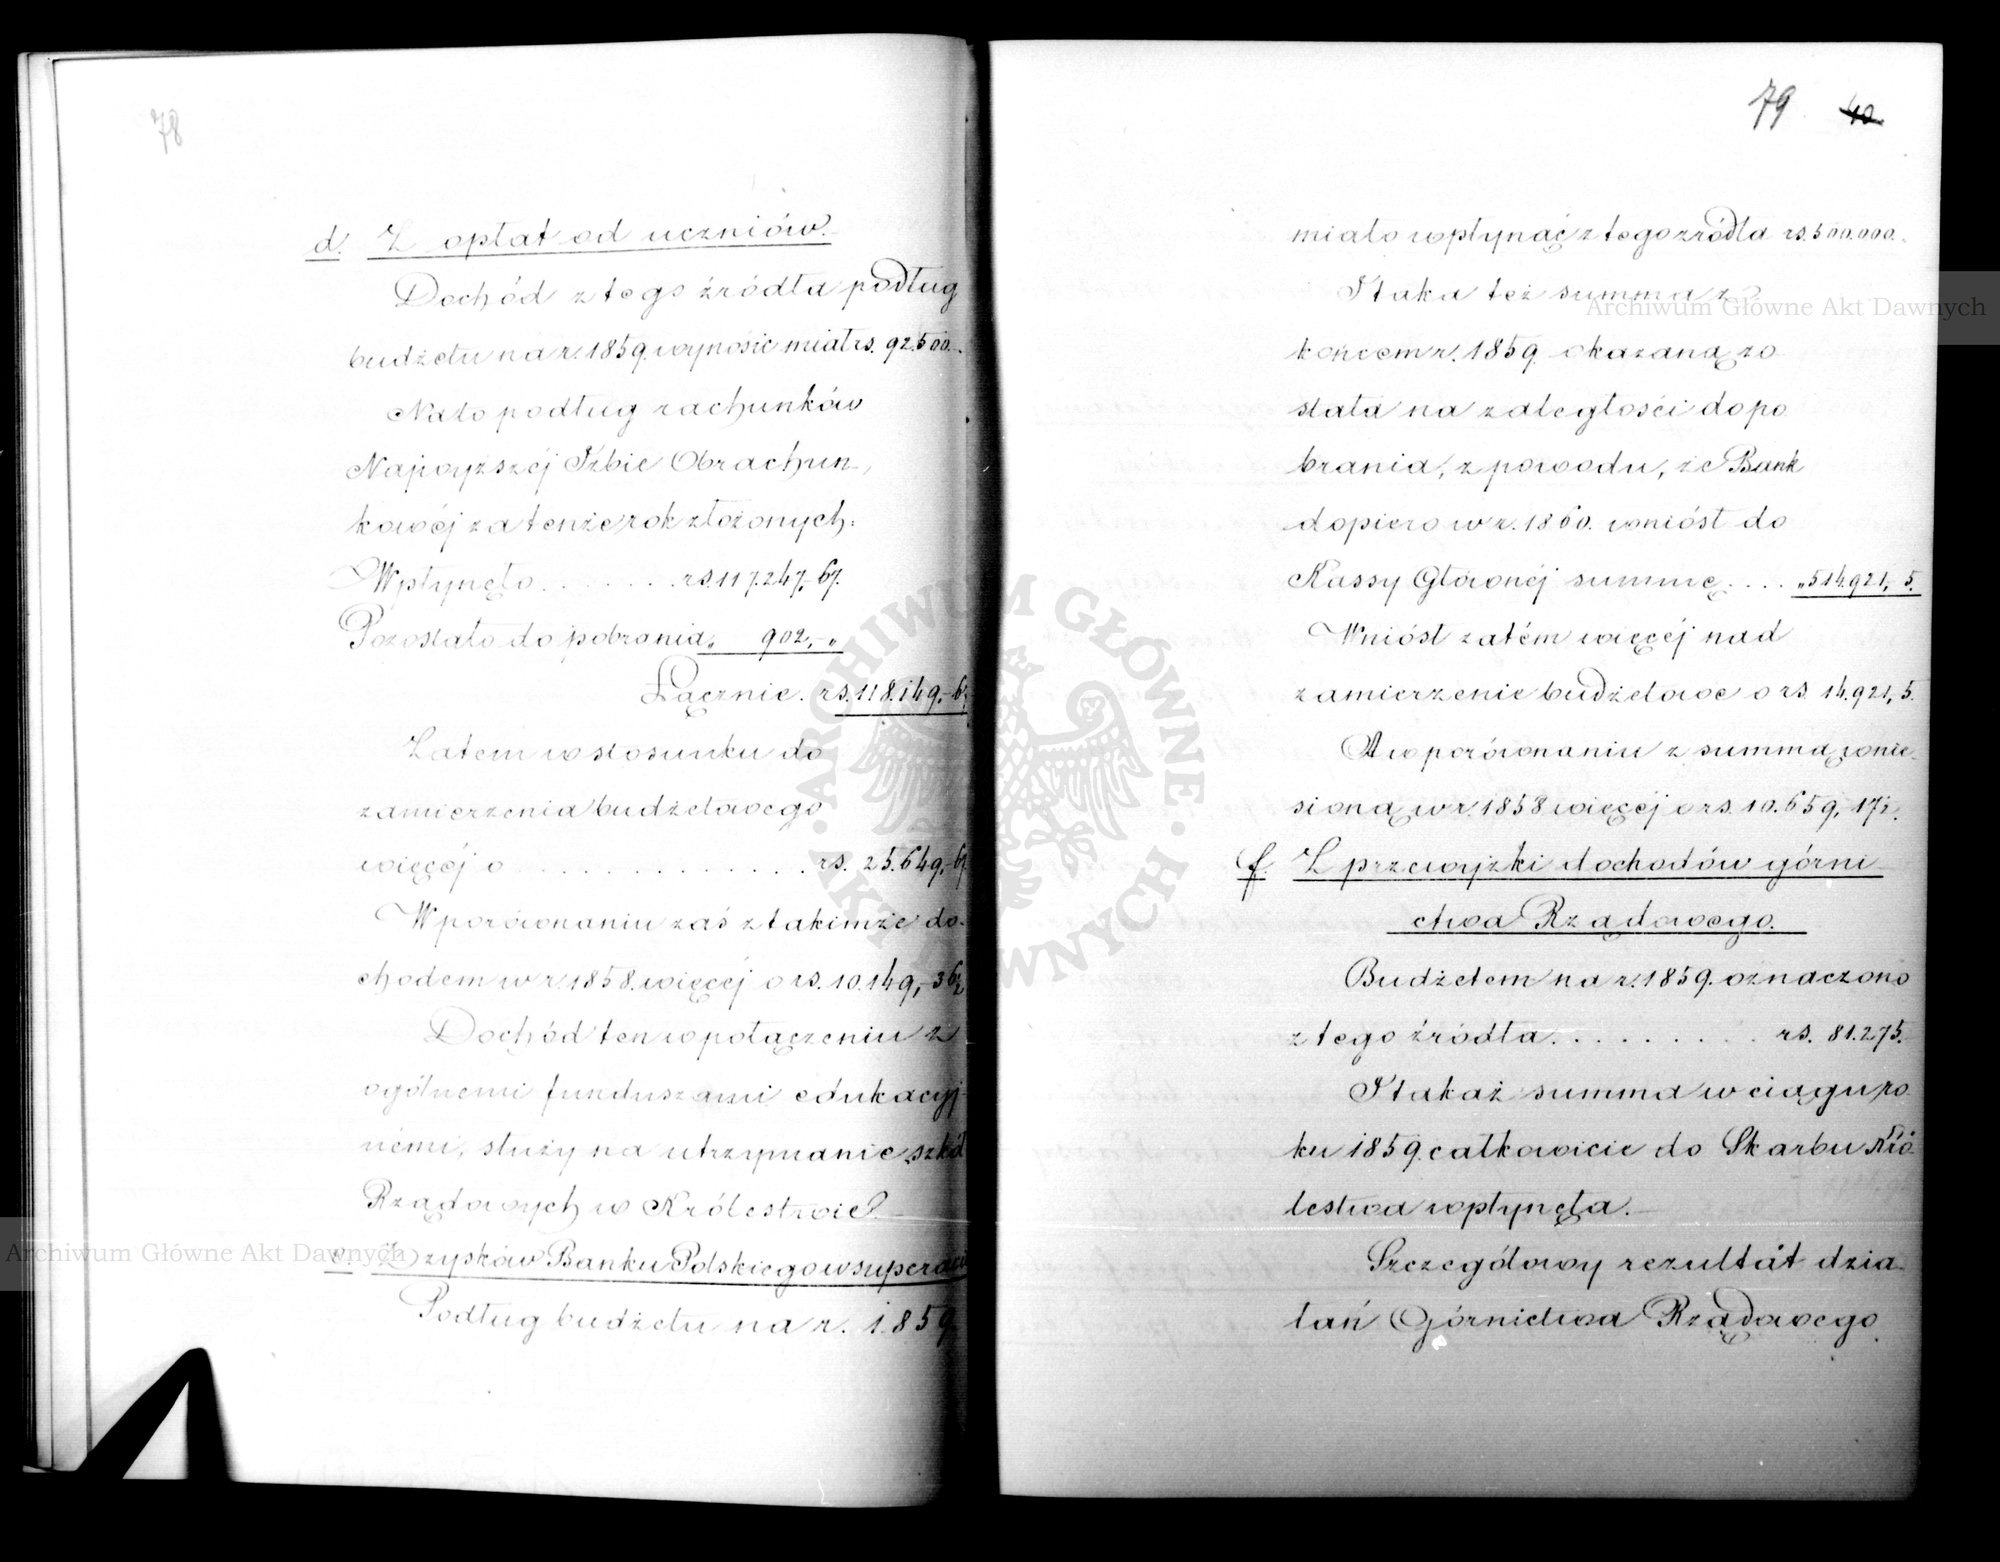 78
d. Z opłat od uczniów.
Dochód z tego źródła podług
budżetu na r. 1859 wynosić miał rs. 92.500.
Na to podług rachunków
Najwyższéj Izbie Obrachun-
kowéj za tenże rok złożonych:
Wpłynęło . . . . . . rs. 117.247,-67.
Pozostało do pobrania „ 902,-„
Łącznie. rs. 118.149,-67
Zatem w stosunku do
zamierzenia budżetowego
więcéj o . . . . . . . . . . . . . rs. 25.649,-67
W porównaniu zaś z takimże do-
chodem w r. 1858. więcéj o rs. 10.149,-36½
Dochód ten w połączeniu z
ogólnemi funduszami edukacyj-
némi, służy na utrzymanie szkół
Rządowych w Królestwie.
e. Z zysków Banku Polskiego w
Podług budżetu na r. 1859
79 40
miało wpłynąć z tego źródła rs. 500.000.
I taka też summa z
końcem r. 1859. okazaną zo
stała na zaległości do po
brania, z powodu, że Bank
dopiero w r. 1860. wniósł do
Kassy Głównéj summę . . . „514.921,-5.
Wniósł zatém więcéj nad
zamierzenie budżetowe o rs 14.921,-5.
A w porównaniu z summą wnie-
sioną w r. 1858 więcéj o rs. 10.659, 17½.
f. Z przewyżki dochodów górni
ctwa Rządowego.
Budżetem na r. 1859. oznaczono
z tego źródła . . . . . . . . . rs. 81.275.
I takaż summa w ciągu ro-
ku 1859. całkowicie do Skarbu Kró-
lestwa wpłynęła.
Szczegółowy rezultat dzia-
łań Górnictwa Rządowego
Archiwum Główne Akt Dawnych
Archiwum Główne Akt Dawnych
ARCHIWUM GŁÓWNE AKT DAWNYCH